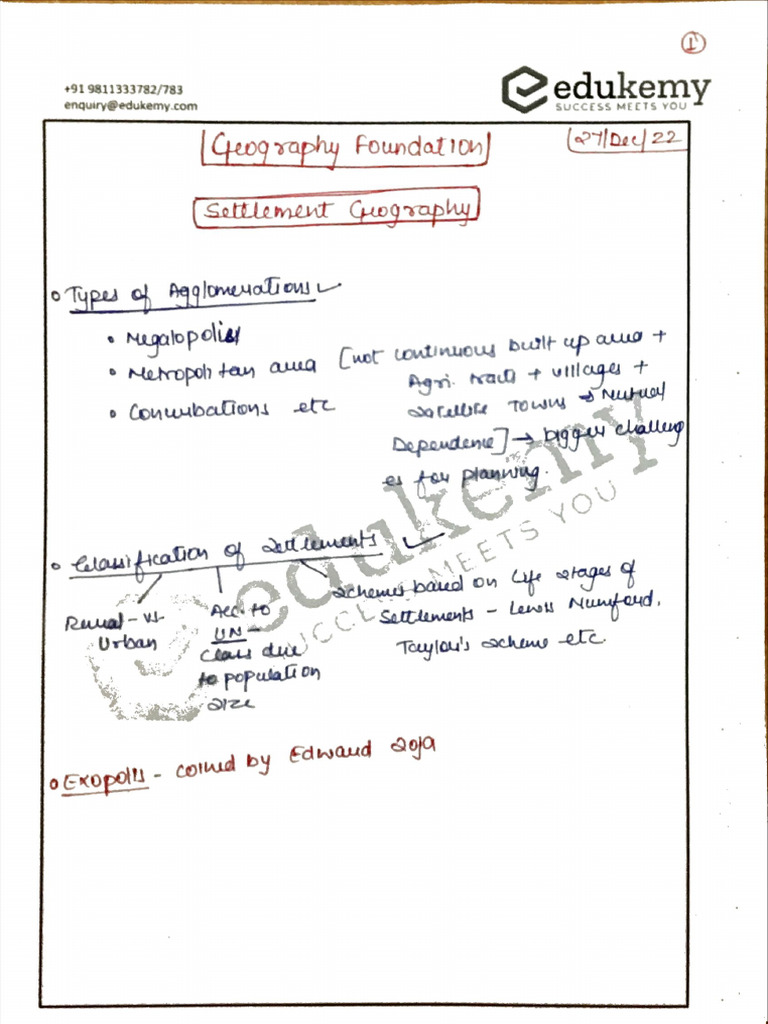 1
+91 9811333782/783
enquiry@edukemy.com
edukemy
SUCCESS MEETS YOU
Geography Foundation
27/Dec/22
Settlement Geography
Types of Agglomerations
• Megalopolis
• Metropolitan area [not continuous built up area +
Agri. tracts + villages +
Satellite Towns → Mutual
Dependence] → bigger challeng
es for planning.
• Conurbations etc
Classification of Settlements
Rural-vs-
Urban
Acc. to
UN -
Class due
to population
size
Schemes based on Life stages of
Settlements - Lewis Mumford,
Taylor's scheme etc.
Exopolis - coined by Edward Soja
edukemy
SUCCESS MEETS YOU